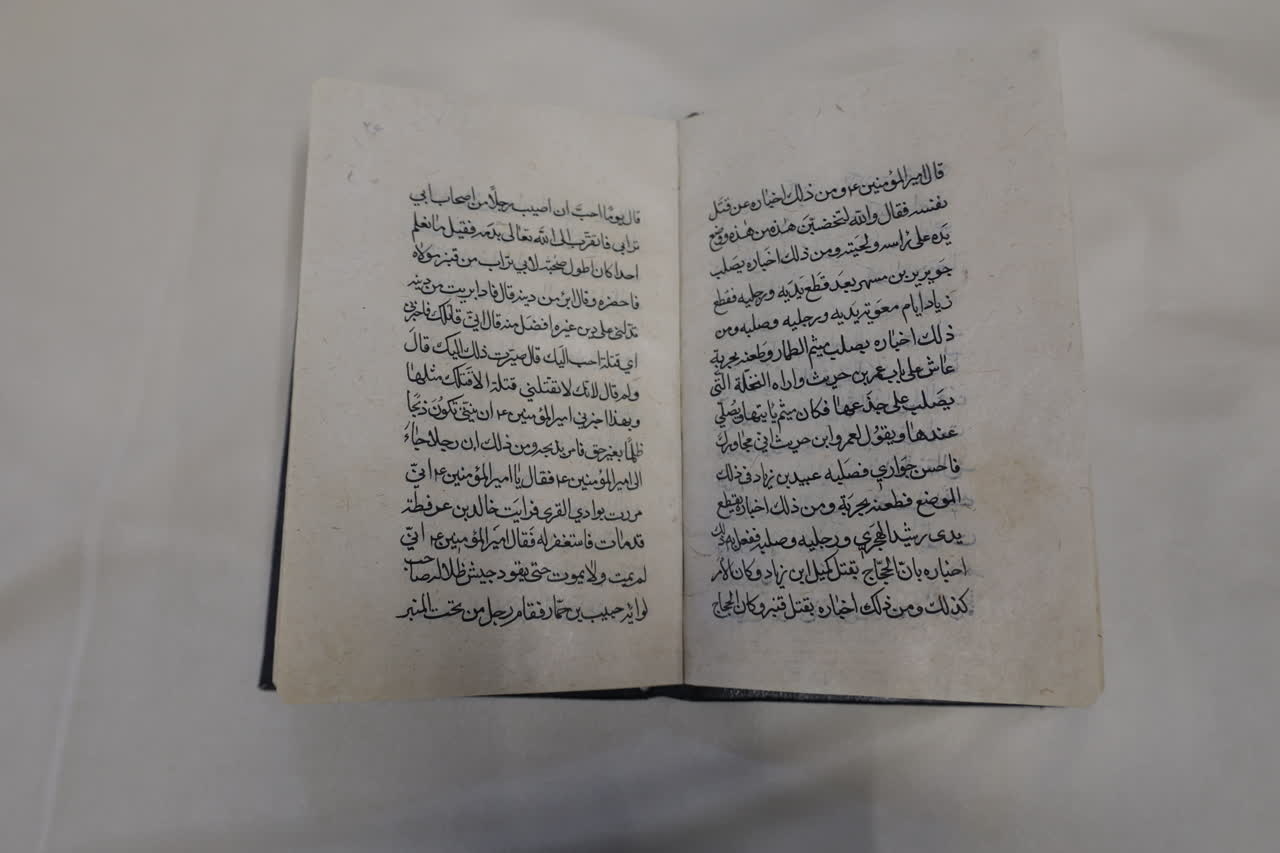 قال امير المؤمنين ۴ ومن ذلك اخباره عن قتل
نفسه فقال والله لتخضبن هذه من هذه ووضع
يده على راسه ولحيته ومن ذلك اخباره بصلب
جويرين بن مسهر بعد قطع يديه ورجليه فقطع
زياد ايام معوية يديه ورجليه وصلبه ومن
ذلك اخباره بصلب ميثم الطمار وطعنه بحربة
عاش على باب عمر بن حريث واراه النخلة التي
يصلب على جذعها فكان ميثم ياتيها ويصلي
عندها ويقول لعمرو ابن حريث اني مجاورك
فاحسن جواري فصلبه عبيد بن زياد في ذلك
الموضع فطعنه بحربة ومن ذلك اخباره بقطع
يدى رشيد الهجري ورجليه وصلبه ففعل به ذلك
اخباره بان الحجاج يقتل كميل ابن زياد وكان الامر
كذلك ومن ذلك اخباره بقتل قنبر وكان الحجاج
۲۶
قال يوما احب ان اصيب رجلا من اصحاب ابي
تراب فاتقرب الى الله تعالى بدمه فقيل ما نعلم
احدا كان اطول صحبة لابي تراب من قنبر مولاه
فاحضره وقال ابرئ من دينه قال فاذا بريت من دينه
تدلني على دين غيره افضل منه قال اني قاتلك فاختر
اي قتلة احب اليك قال صيرت ذلك اليك قال
ولم قال لانك لا تقتلني قتلة الا قتلتك مثلها
وبهذا اخبرني امير المؤمنين ۴ ان ميتتي تكون ذبحا
ظلما بغير حق فامر بذبحه ومن ذلك ان رجلا جاء
الى امير المؤمنين ۴ فقال يا امير المؤمنين ۴ اني
مررت بوادي القرى فرايت خالد بن عرفطة
قد مات فاستغفر له فقال امير المؤمنين ۴ اني
لم يمت ولا يموت حتى يقود جيش ظلالة صاحب
لوائه حبيب بن حمار فقام رجل من تحت المنبر